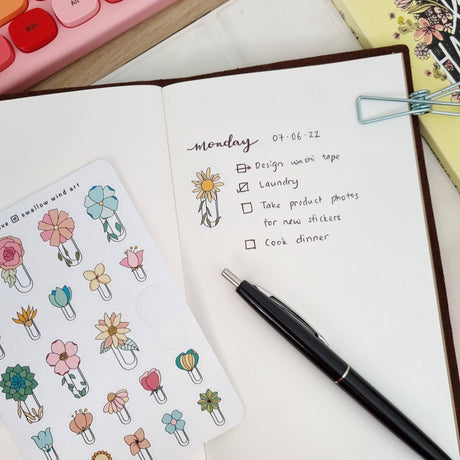 Win
monday 07·06·22
Design washi tape
Laundry
Take product photos
for new stickers
Cook dinner
ve @ swallow wind art